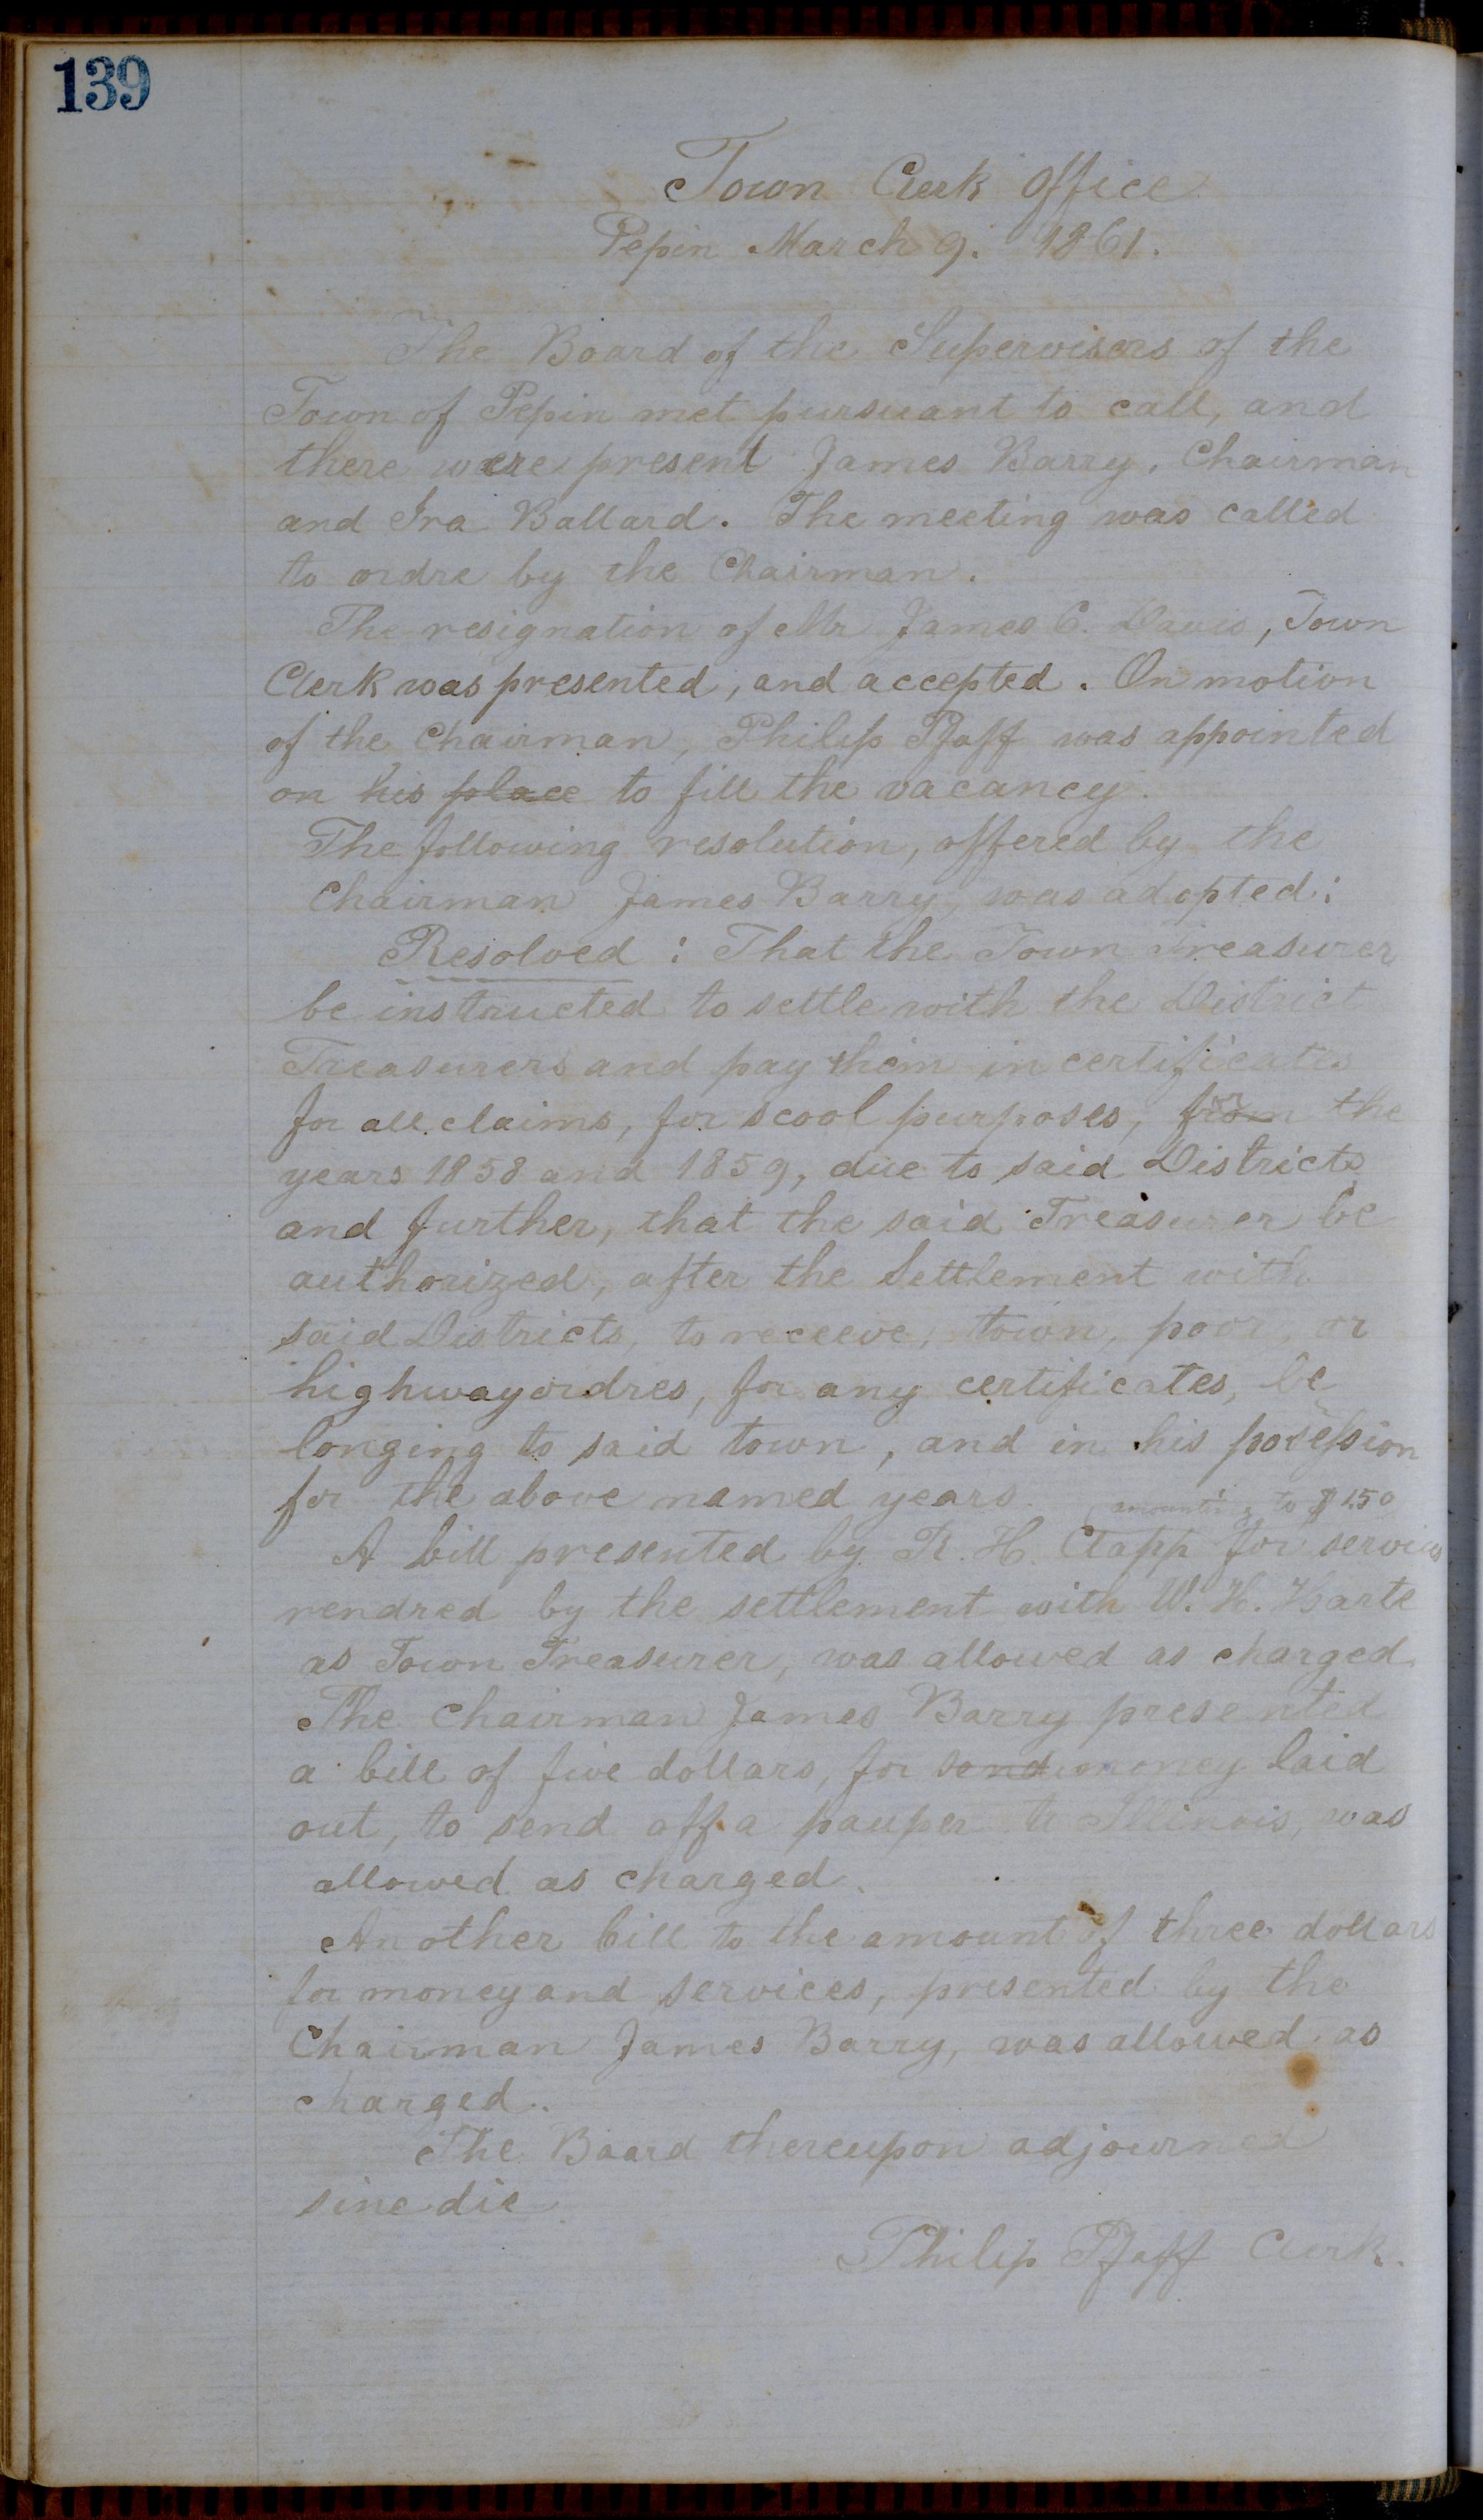 139
Town Clerk Office
Pepin March 9. 1861.
The Board of the Supervisors of the
Town of Pepin met pursuant to call, and
there were present James Barry, Chairman
and Ira Ballard. The meeting was called
to ordre by the Chairman.
The resignation of Mr James C. Davis, Town
Clerk was presented, and accepted. On motion
of the Chairman, Philip Pfaff was appointed
on his place to fill the vacancy.
The following resolution, offered by the
Chairman James Barry, was adopted:
Resolved: That the Town Treasurer
be instructed to settle with the District
Treasurers and pay them in certificates
for all claims, for scool purposes, from for the
years 1858 and 1859, due to said Districts
and further, that the said Treasurer be
authorized, after the Settlement with
said Districts, to receeve, town, poor or
highway ordres, for any certificates, be
longing to said town, and in his posession
for the above named years.
amounting to $1.50
A bill presented by R. H. Clapp for services
rendred by the settlement with W. H. Harte
as Town Treasurer, was allowed as charged.
The Chairman James Barry presented
a bill of five dollars, for send money laid
out, to send off a pauper to Illinois, was
allowed as charged.
Another bill to the amount of three dollars
for money and services, presented by the
Chairman James Barry, was allowed as
charged.
The Board thereupon adjourned
sine die
Philip Pfaff Clerk.